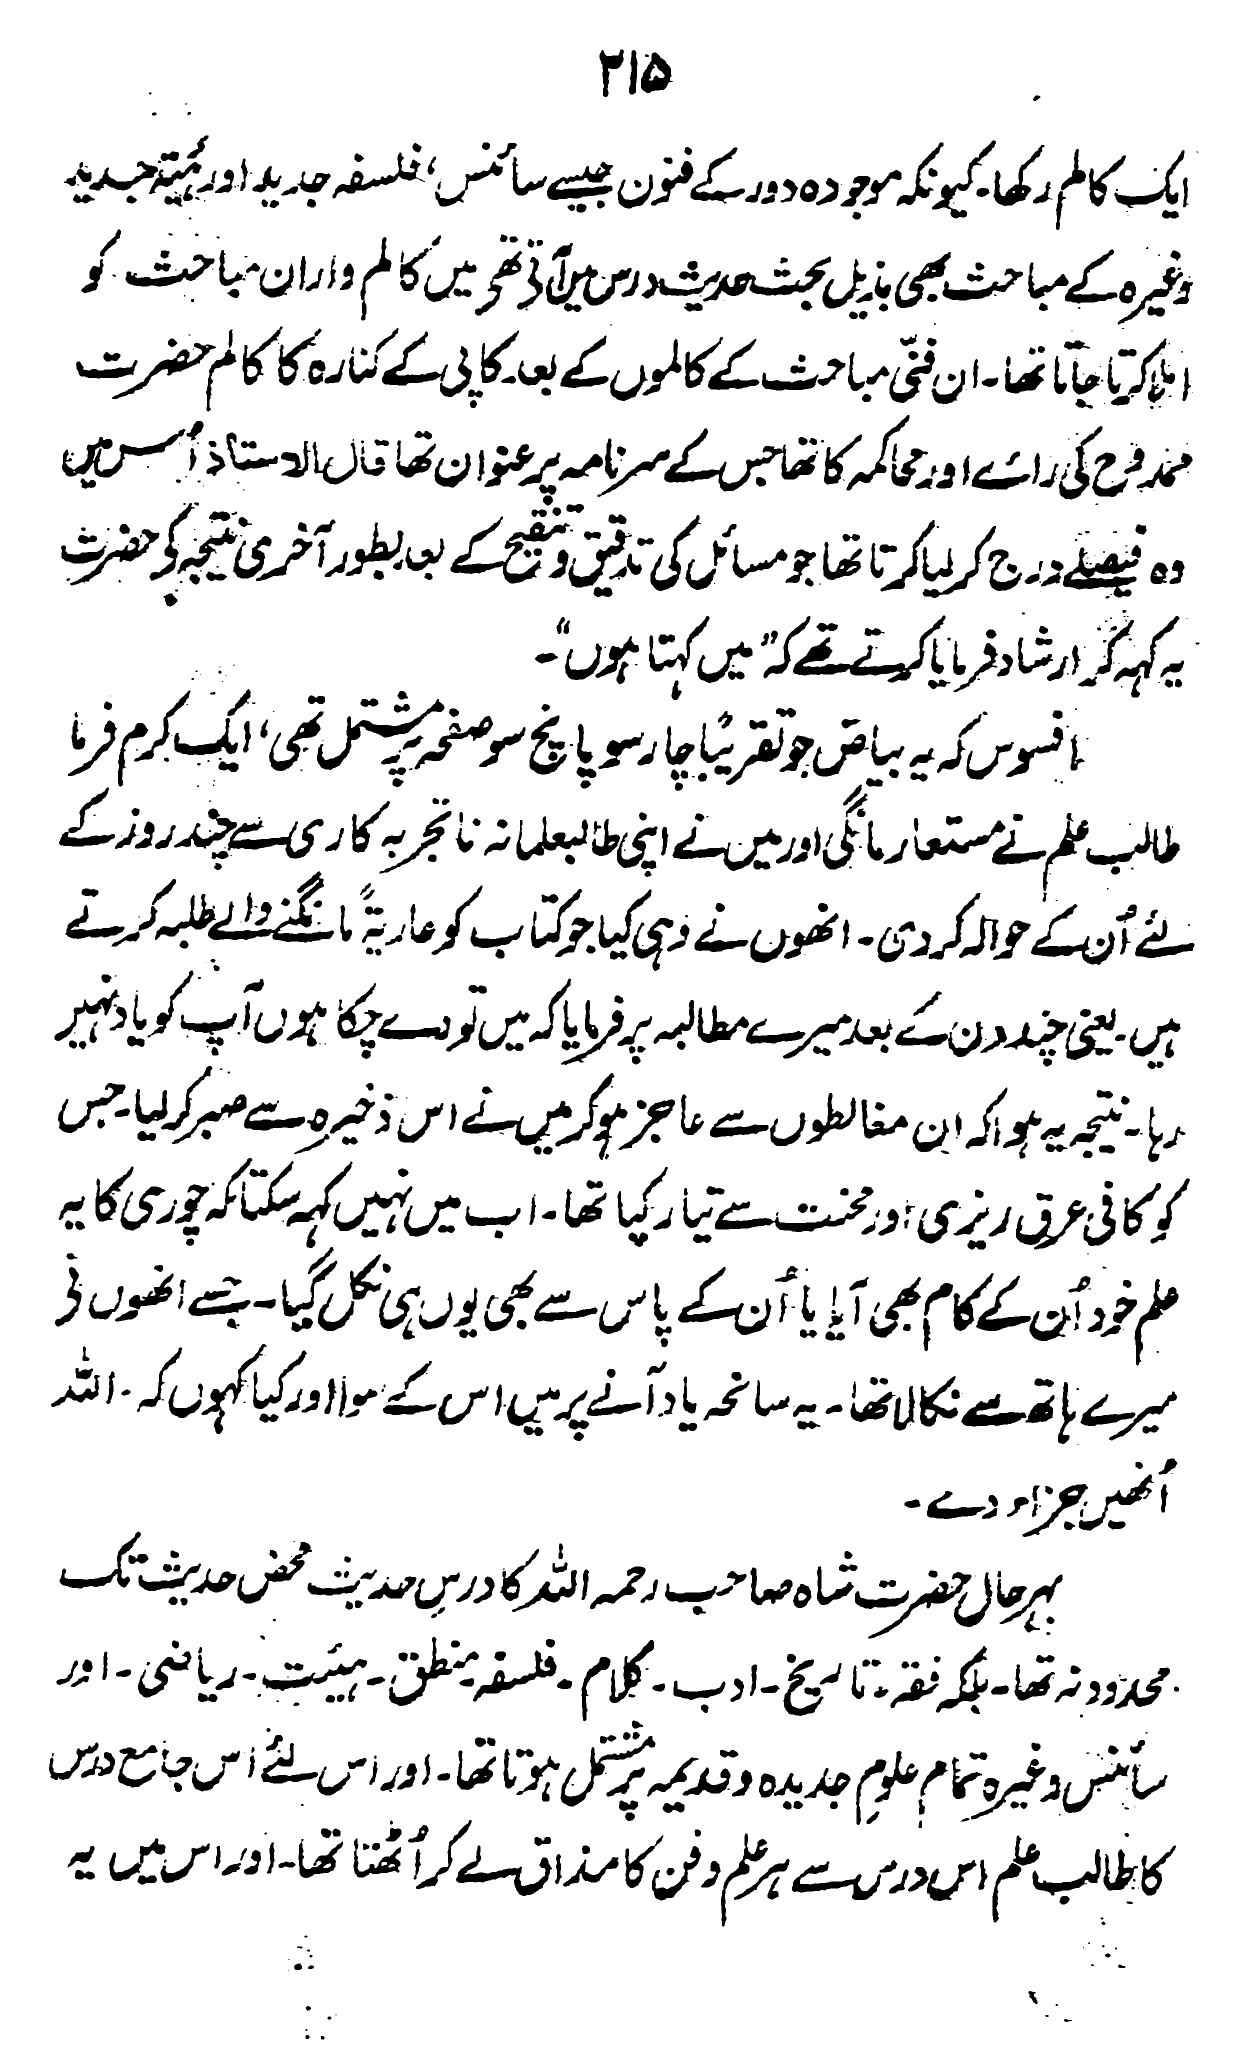 ۲۱۵
ایک کالم رکھا۔ کیونکہ موجودہ دور کے فنون جیسے سائنس، فلسفہ جدید اور ہیئۃ جدید
وغیرہ کے مباحث بھی بذیل بحث حدیث درس میں آتی تھی میں کالم وار ان مباحث کو
املا کرتا جاتا تھا۔ ان فنّی مباحث کے کالموں کے بعد کاپی کے کنارہ کا کالم حضرت
ممدوح کی رائے اور محاکمہ کا تھا جس کے سرنامہ پر عنوان تھا قال الاستاذ اُس میں
وہ فیصلے درج کر لیا کرتا تھا جو مسائل کی تدقیق و تنقیح کے بعد بطور آخری نتیجہ کی حضرت
یہ کہہ کر ارشاد فرمایا کرتے تھے کہ ”میں کہتا ہوں“۔
افسوس کہ یہ بیاض جو تقریبًا چار سو پانچ سو صفحہ پر مشتمل تھی، ایک کرم فرما
طالب علم نے مستعار مانگی اور میں نے اپنی طالبعلمانہ ناتجربہ کاری سے چند روز کے
لئے اُن کے حوالہ کر دی۔ انھوں نے وہی کیا جو کتاب کو عاریۃً مانگنے والے طلبہ کرتے
ہیں۔ یعنی چند دن کے بعد میرے مطالبہ پر فرمایا کہ میں تو دے چکا ہوں آپ کو یاد نہیں
رہا۔ نتیجہ یہ ہوا کہ ان مغالطوں سے عاجز ہو کر میں نے اس ذخیرہ سے صبر کر لیا۔ جس
کو کافی عرق ریزی اور محنت سے تیار کیا تھا۔ اب میں نہیں کہہ سکتا کہ چوری کا یہ
علم خود اُن کے کام بھی آیا یا اُن کے پاس سے بھی یوں ہی نکل گیا۔ جسے انھوں نی
میرے ہاتھ سے نکالا تھا۔ یہ سانحہ یاد آنے پر میں اس کے سوا اور کیا کہوں کہ۔ اللہ
اُنھیں جزاء دے۔
بہرحال حضرت شاہ صاحب رحمہ اللہ کا درسِ حدیث محض حدیث تک
محدود نہ تھا۔ بلکہ فقہ۔ تاریخ۔ ادب۔ کلام۔ فلسفہ۔ منطق۔ ہیئت۔ ریاضی۔ اور
سائنس وغیرہ تمام علومِ جدیدہ و قدیمہ پر مشتمل ہوتا تھا۔ اور اس لئے اس جامع درس
کا طالب علم اس درس سے ہر علم و فن کا مذاق لے کر اُٹھتا تھا۔ اور اس میں یہ